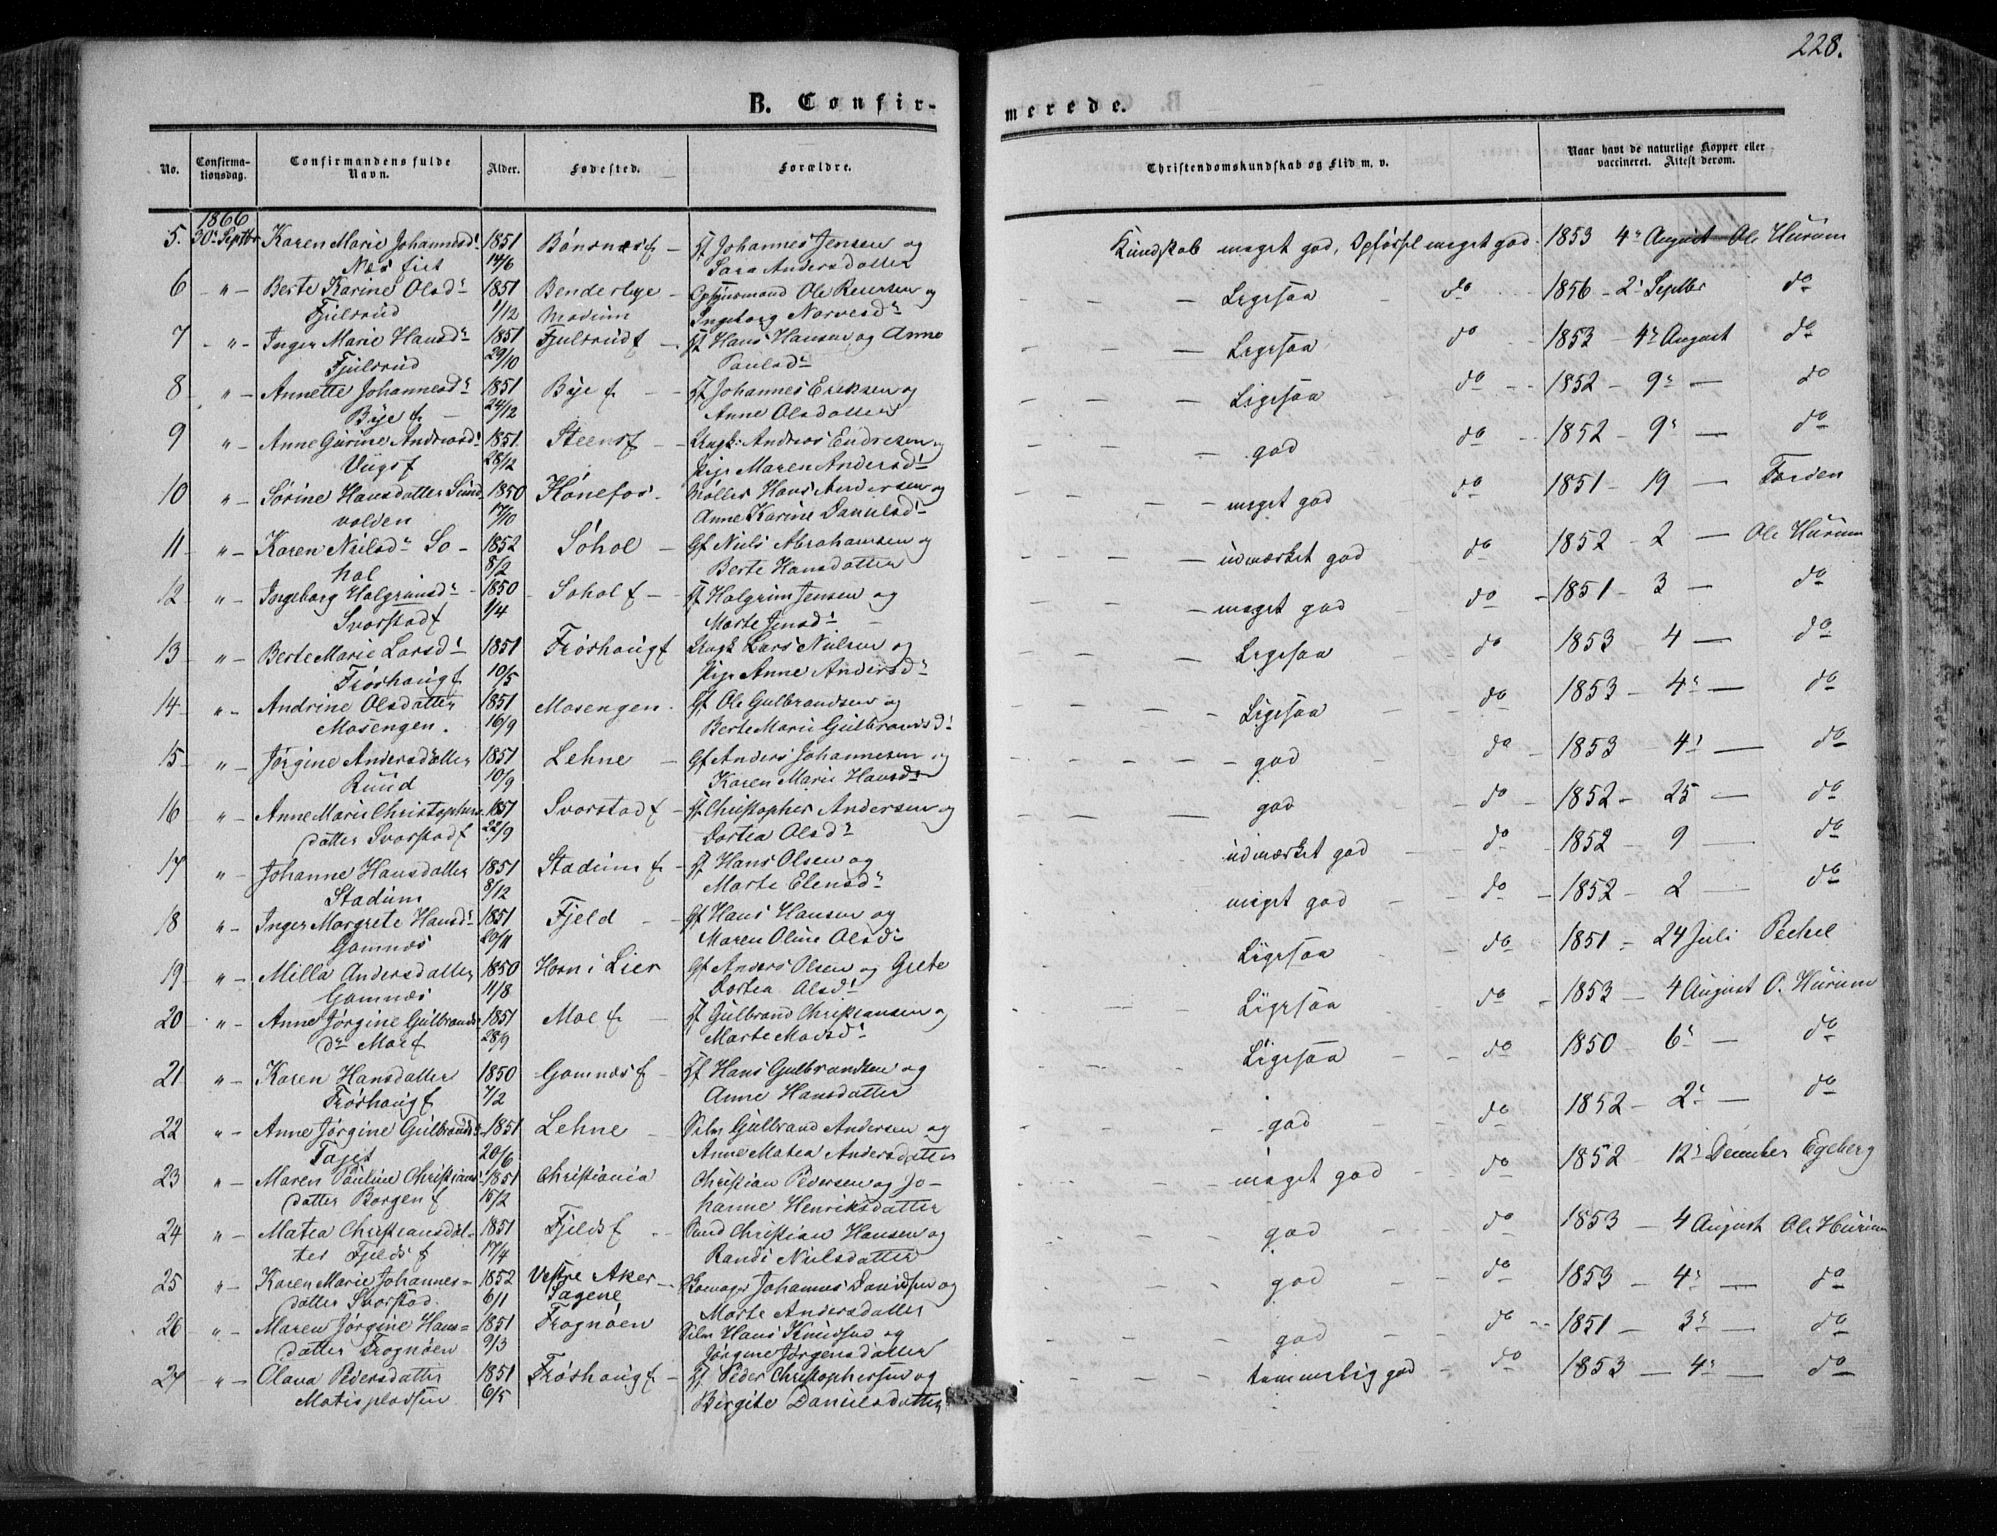 228.
B. Confir-
merede.
No.
Confirma-
tionsdag.
Confirmandens fulde
Navn.
Alder.
Fødested.
Forældre.
Christendomskundskab og Flid m. v.
Naar havt de naturlige Kopper eller
vaccineret. Attest derom.
1866
5. 30' Septbr Karen Marie Johannesd' 1851 Bönsnæs f — Johannes Jensen og Kundskab meget god, Opførsel meget god 1853 4' August Ole Hurum
Næs fiet 14/6 Sara Andersdatter
6 " Berte Karine Olsd' 1851 Benderbye Ole Reiersen og Ligesaa do 1856 - 2' Septbr do
Fjulsrud 1/12 Modum Ingeborg Narvesd'
7 " Inger Marie Hansd' 1851 Fjulsrud f — Hans Hansen og Anne Ligesaa do 1853 - 4' August do
Fjulsrud 29/10 Paulsd'
8 " Annette Johannesd' 1851 Bye f — Johannes Eriksen og Ligesaa do 1852 - 9' — do
Bye f 24/12 Anne Olsdatter
9 " Anne Gurine Andreasd' 1851 Steens f — Ungk. Andreas Endresen og god do 1852 - 9' — do
Viigs f 28/12 Pige Maren Andersd'
10 " Sörine Hansdatter Sund 1850 Hönefos — Möller Hans Andersen og meget god do 1851 - 19 — Forden
volden 17/10 Anne Karine Danielsd'
11 " Karen Nielsd' So- 1852 Sohol — Gf Niels Abrahamsen og udmærket god do 1852 - 2 — Ole Hurum
hol 8/2 Berte Hansdatter
12 " Ingeborg Halgrimsd' 1850 Sohol f — Halgrim Jensen og meget god do 1851 - 3 — do
Svarstad f 1/4 Marte Jensd'
13 " Berte Marie Larsd' 1851 Fröshaug f Ungk Lars Nielsen og Ligesaa do 1853 - 4 — do
Fröshaug f 10/5 Pige Anne Andersd'
14 " Andrine Olsdatter 1851 Mosengen Gf Ole Gulbrandsen og Ligesaa do 1853 - 4' — do
Mosengen. 16/9 Berte Marie Gulbrandsd'
15 " Jørgine Andersdatter 1851 Lehne — Gf Anders Johannesen og god do 1853 - 4' — do
Ruud 10/9 Karen Marie Hansd'
16 " Anne Marie Christophers- 1851 Svorstad f — Christopher Andersen og god do 1852 - 25 — do
datter Svorstad f 22/9 Dortea Olsd'
17 " Johanne Hansdatter 1851 Stadum f — Hans Olsen og udmærket god do 1852 9 — do
Stadum 8/12 Marte Elensd'
18 " Inger Margrete Hansd' 1851 Fjeld — Gf Hans Hansen og meget god do 1852 - 2 — do
Gomnæs 20/11 Maren Oline Olsd'
19 " Milla Andersdatter 1850 Horn i Lier Gf Anders Olsen og Grete Ligesaa do 1851 - 24 Juli Pechel
Gomnæs 11/8 Dortea Olsd'
20 " Anne Jørgine Gulbrands- 1851 Moe f — Gulbrand Christiansen og Ligesaa do 1853 - 4 August O. Hurum
d' Moe f 28/9 Marte Madsd'
21 " Karen Hansdatter 1850 Gomnæs f — Hans Gulbrandsen og Ligesaa do 1850 6' — do
Fröshaug f 7/2 Anne Hansdatter
22 " Anne Jørgine Gulbrands- 1851 Lehne — Gulbrand Andersen og god do 1852 - 2' — do
Taget 20/6 Anne Matea Andersdatter
23 " Maren Pauline Christians- 1851 Christiania Christian Pedersen og Jo- meget god do 1852 - 12' December Egeberg
datter Borgen f 15/2 hanne Henriksdatter
24 " Matea Christiansdat- 1851 Fjelds f Christian Hansen og god do 1853 - 4 August Ole Hurum
ter Fjelds f 17/4 Randi Nielsdatter
25 " Karen Marie Johannes- 1852 Vestre Aker — Johannes Davidsen og god do 1853 - 4' — do
datter Svorstad. 6/1 Sagene Marte Andersdatter
26 " Maren Jørgine Hans- 1851 Frognöen Hans Knudsen og god do 1851 - 3' — do
datter Frognöen 9/3 Jørgine Jørgensdatter
27 " Olava Pedersdatter 1851 Fröshaug f — Peder Christophersen og temmelig god do 1853 - 4' — do
Matispladsen 6/5 Birgite Danielsdatter